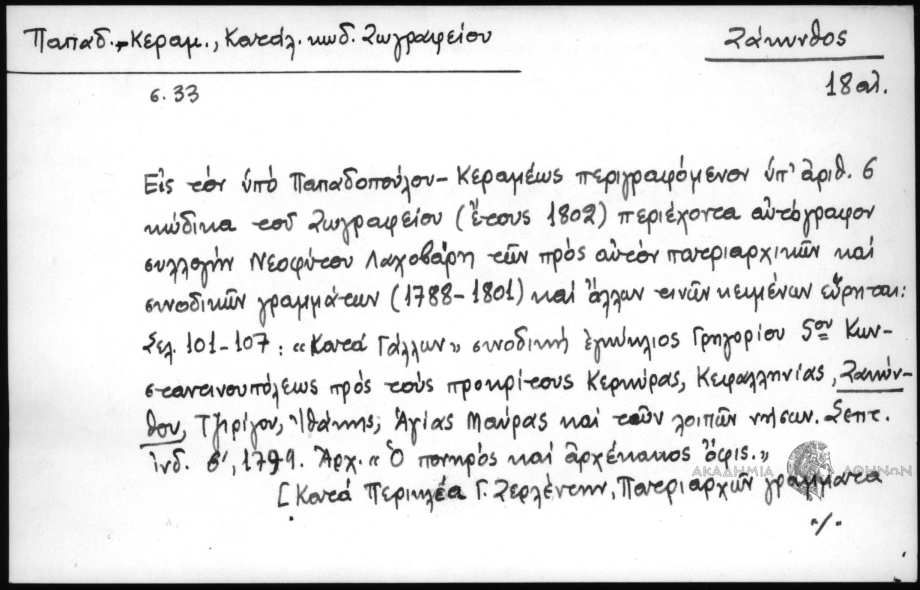 Παπαδ.-Κεραμ., Κατάλ. κωδ. Ζωγραφείου
Ζάκυνθος
18 αι.
σ. 33
Εἰς τόν ὑπό Παπαδοπούλου-Κεραμέως περιγραφόμενον ὑπ' ἀριθ. 6
κώδικα τοῦ Ζωγραφείου (ἔτους 1802) περιέχοντα αὐτόγραφον
συλλογήν Νεοφύτου Λαχοβάρη τῶν πρός αὐτόν πατριαρχικῶν καί
συνοδικῶν γραμμάτων (1788-1801) καί ἄλλων τινῶν κειμένων εὕρηται:
Σελ. 101-107: «Κατά Γάλλων» συνοδική ἐγκύκλιος Γρηγορίου 5ου Κων-
σταντινουπόλεως πρός τούς προκρίτους Κερκύρας, Κεφαλληνίας, Ζακύν-
θου, Τζιρίγου, Ἰθάκης, Ἁγίας Μαύρας καί τῶν λοιπῶν νήσων. Σεπτ.
ἰνδ. 1799. Ἀρχ. «Ὁ πονηρός καί ἀρχέκακος ὄφις.»
[Κατά Περικλέα Γ. Ζερλέντην, Πατριαρχῶν γράμματα
ΑΚΑΔΗΜΙΑ ΑΘΗΝΩΝ
./.